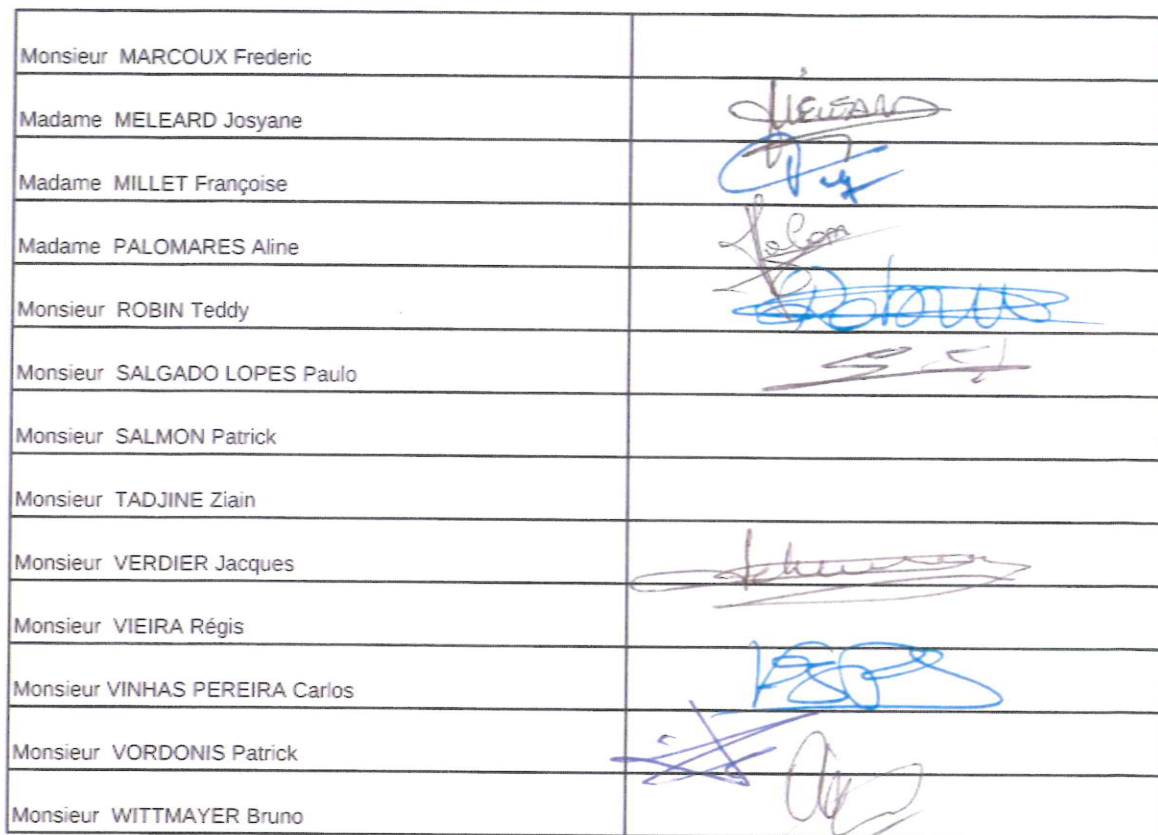 Monsieur MARCOUX Frederic
Madame MELEARD Josyane
MELEARD
Madame MILLET Françoise
Madame PALOMARES Aline
Monsieur ROBIN Teddy
Monsieur SALGADO LOPES Paulo
Monsieur SALMON Patrick
Monsieur TADJINE Ziain
Monsieur VERDIER Jacques
Monsieur VIEIRA Régis
Monsieur VINHAS PEREIRA Carlos
Monsieur VORDONIS Patrick
Monsieur WITTMAYER Bruno